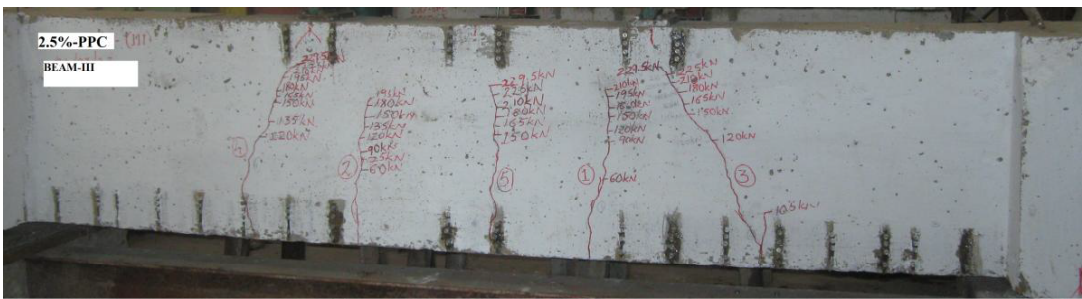 2.5%-PPC
BEAM-III
195kN
180kN
165kN
150kN
135kN
120kN
2
195kN
180kN
150kN
135kN
120kN
90kN
75kN
60kN
5
229.5kN
225kN
210kN
180kN
165kN
150kN
1
229.5kN
210kN
195kN
180kN
150kN
120kN
90kN
60kN
3
225kN
210kN
180kN
165kN
150kN
120kN
105kN